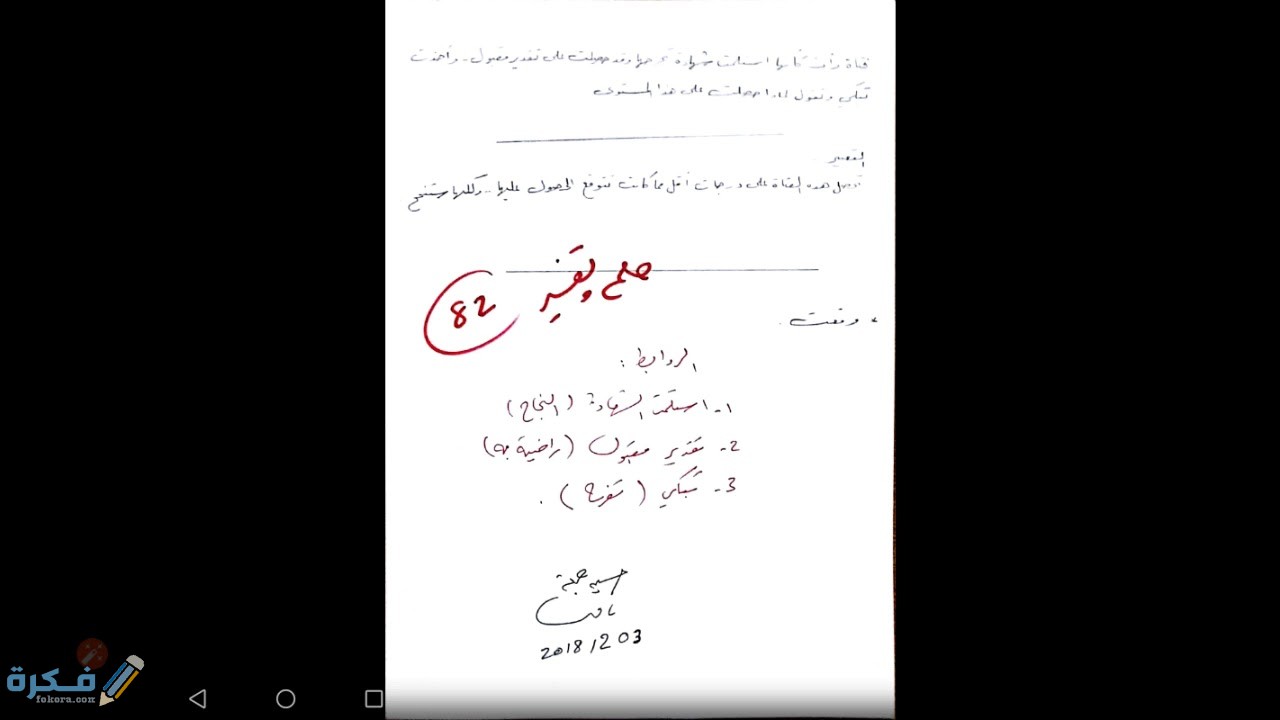 فتاة رأت كأنها استلمت شهادة تخرجها وقد حصلت على تقدير مقبول - وأخذت
تبكي وتقول لماذا حصلت على هذا المستوى
التفسير
تحصل هذه الفتاة على درجات أقل مما كانت تتوقع الحصول عليها - ولكنها ستنجح
حلم وتفسير
82
وقعت
الروابط :
1- استلمت الشهادة (النجاح)
2- تقدير مقبول (راضية به)
3- تبكي (تفرح) .
حسين جمعة
2018/12/03
فكرة
fokera.com